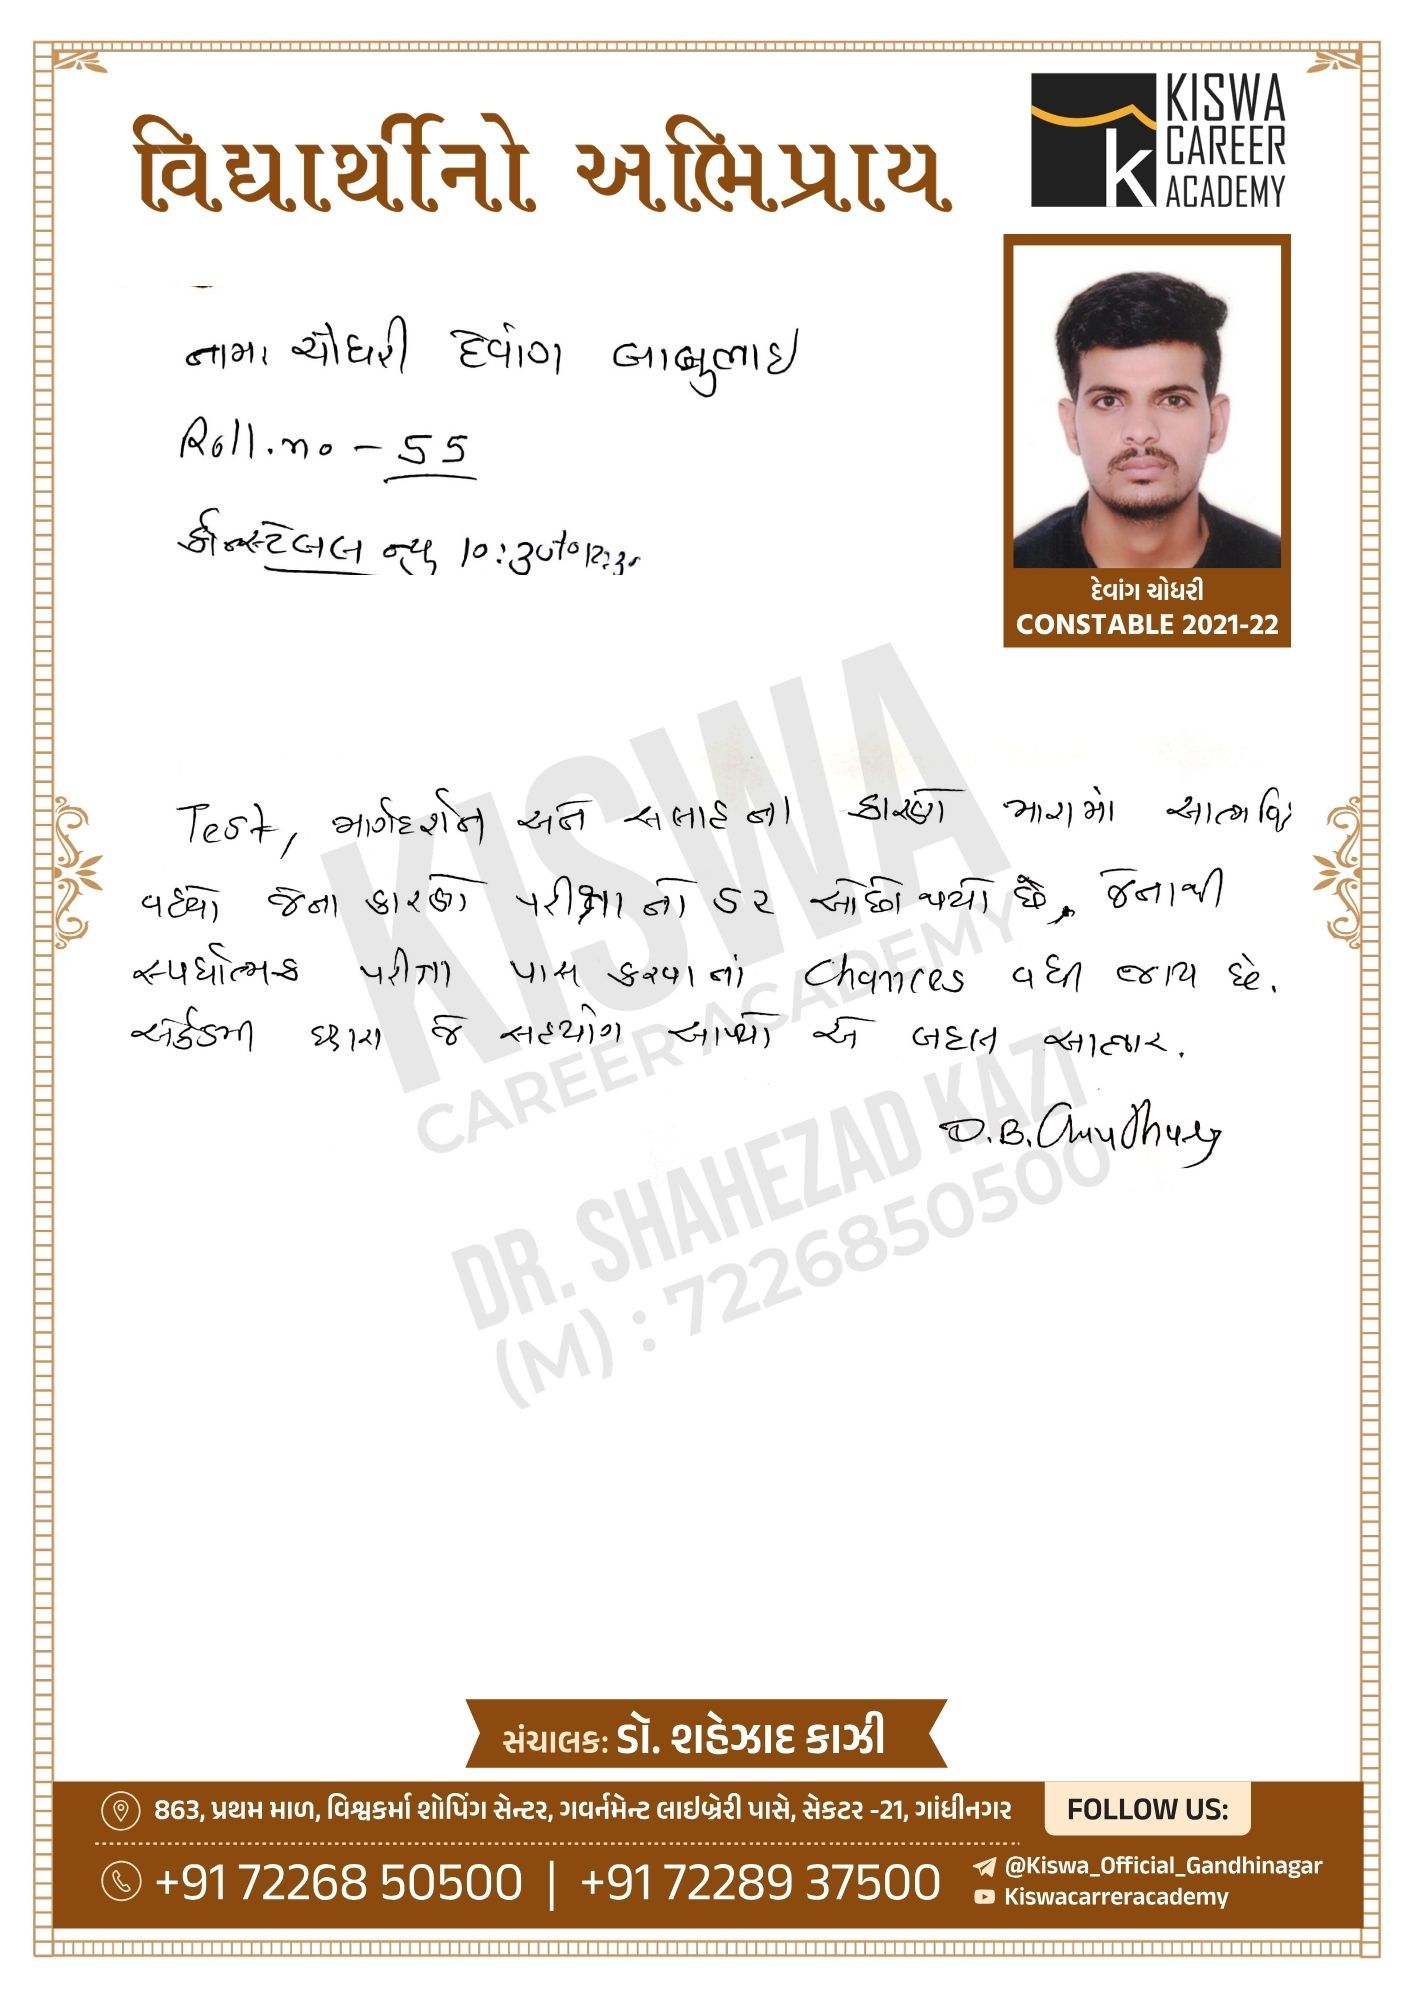 વિદ્યાર્થીનો અભિપ્રાય
KISWA
CAREER
ACADEMY
નામ: ચૌધરી દેવાંગ બાબુભાઇ
Roll.no - 55
કોન્સ્ટેબલ ન્યુ 10:30 to 12:30
દેવાંગ ચોધરી
CONSTABLE 2021-22
Test, માર્ગદર્શન અને સલાહના કારણે મારામાં આત્મવિ
વધ્યો જેના કારણે પરીક્ષાનો ડર ઓછો થયો છે, જેનાથી
સ્પર્ધાત્મક પરીક્ષા પાસ કરવાનાં Chances વધી જાય છે.
એકેડમી દ્વારા જે સહયોગ આપ્યો એ બદલ આભાર.
D.B. Chaudhary
KISWA
CAREER ACADEMY
DR. SHAHEZAD KAZI
(M) : 7226850500
સંચાલક: ડૉ. શહેઝાદ કાઝી
863, પ્રથમ માળ, વિશ્વકર્મા શોપિંગ સેન્ટર, ગવર્નમેન્ટ લાઇબ્રેરી પાસે, સેકટર -21, ગાંધીનગર
FOLLOW US:
+91 72268 50500 | +91 72289 37500
@Kiswa_Official_Gandhinagar
Kiswacarreracademy